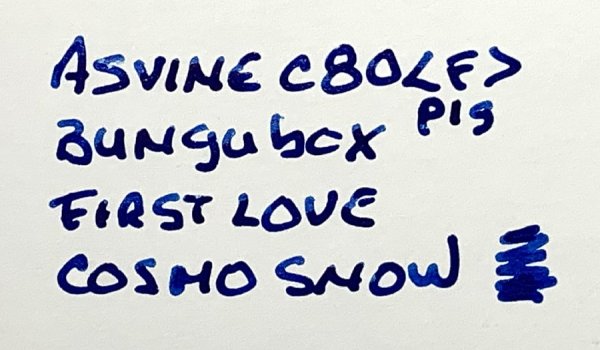 ASVINE C80<F>
P19
Bungubox
FIRST LOVE
COSMO SNOW